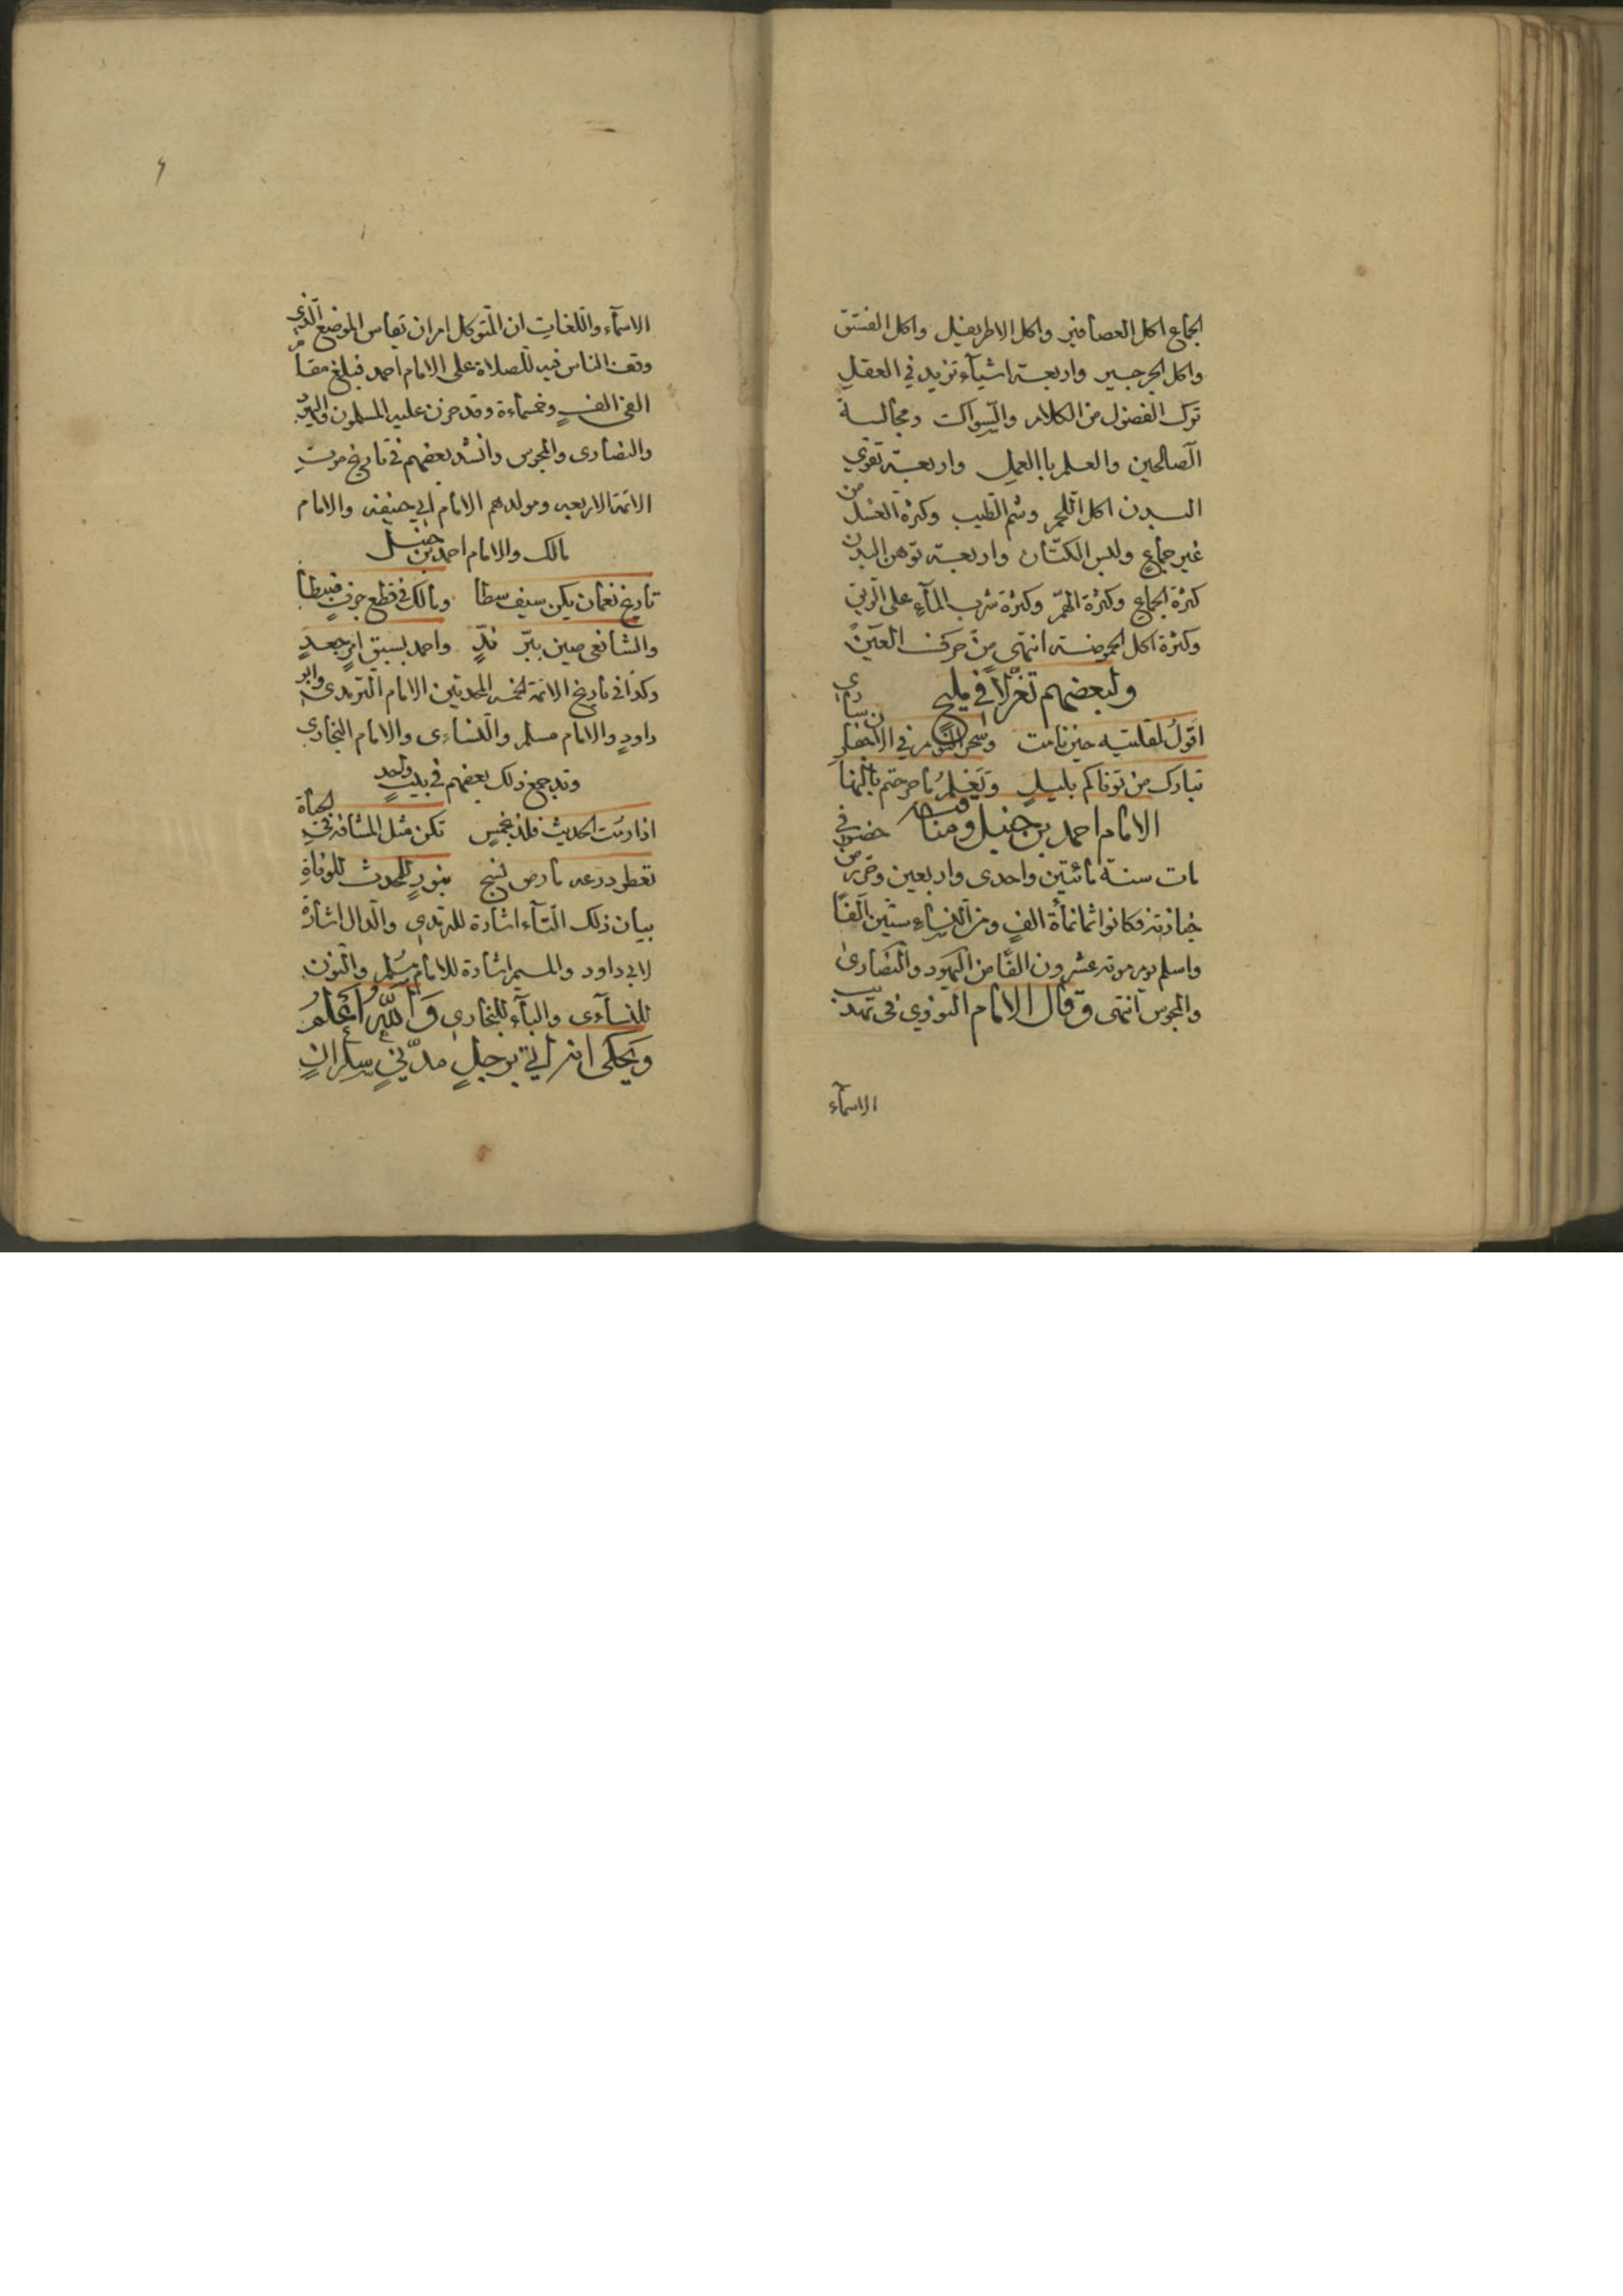 الجماع اكل العصافير واكل الاطريفيل واكل الفستق
واكل الجرجير واربعة اشيآء تزيد في العقل
ترك الفضول من الكلام والسّواك ومجالسة
الصّالحين والعلم باالعمل واربعة تقوي
البدن اكل اللّحم وشم الطّيب وكثرة الغسل من
غير جماعٍ ولبس الكتّان واربعة توهن البدن
كثرة الجماع وكثرة الهمّ وكثرة شرب المآءِ على الريق
وكثرة اكل الحموضة انتهى من حركت العين
ولبعضهم تغزّلاً في مليح
اقول لمقلتيه حين نامت وسحر النّوم في الاجفان ساري
تبارك من توفاكم بليلٍ ويعلم ما جرحتم بالنهار
الامام احمد بن حنبل ومناقبه
مات سنة مائتين واحدى واربعين وحزر من حضر في
جنازته فكانوا ثمانمأة الفٍ ومن النّساءِ ستّين الفًا
واسلم يوم موته عشرون الفًا من اليهود والنّصارىٰ
والمجوس انتهى وقال الامام النووي فى تهذيب
الاسمآء
٦
الاسمآء واللّغات ان المتوكل امر ان تقاس الموضع الّذي
وقف النّاس فيه للصلاة على الامام احمد فبلغ مقام
الفى الفٍ وخمسماءة وقد حزن عليه المسلمون واليهود
والنصارى والمجوس وانشد بعضهم فى تاريخ موت
الائمة الاربعه ومولدهم الامام ابي حنيفه والامام
مالك والامام احمد بن حنبل
تاريخ نعمان يكن سيف سطا ومالك فى قطع جوفٍ ضبطا
والشافعى صين ببّر ندّ واحمد بسبق امرٍ جعدٍ
وكذا فى تاريخ الائمة الخمسه المحدثين الامام الترمدي وابو
داودٍ والامام مسلم والنّساءِى والامام البخاري
وقد جمع ذلك بعضهم فى بيتٍ واحد
اذا رمت الحديث فلذ بخمسٍ تكن مثل المشافه فى الحياة
بيان ذلك التّآء اشارة للترمذي والدّال اشارة
لابي داود والميم اشارة للامام مسلم والنون
للنسآءى والبآء للبخاري وَاللّٰه اَعلمُ
ويحكى انه اتي برجلٍ مدّنيٍ سكرانٍ